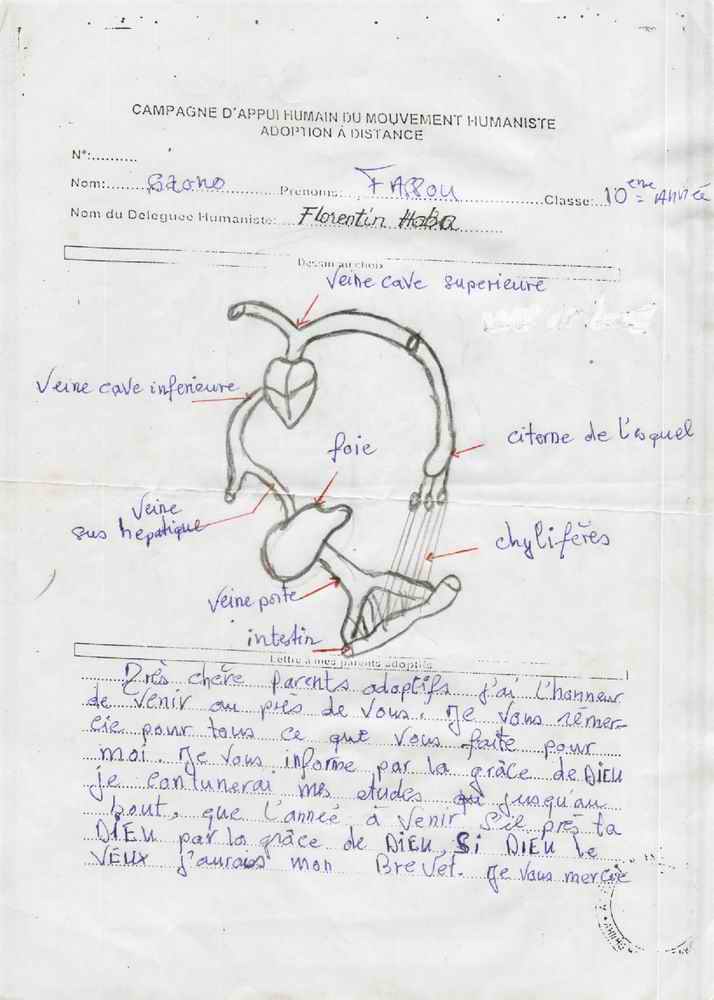 CAMPAGNE D'APPUI HUMAIN DU MOUVEMENT HUMANISTE
ADOPTION À DISTANCE
N°:..........
Nom: Gzono Prenoms: FASSOU Classe: 10 eme ANNÉE
Nom du Deleguee Humaniste: Florentin Haba
Dessin au choix
Veine cave superieure
Veine cave inferieure
citerne de l'esquel
foie
Veine
sus hepatique
chylifères
Veine porte
intestin
Lettre à mes parents adoptifs
Très chère parents adoptifs j'ai l'honneur
de venir au près de vous. Je vous rémer-
cie pour tous ce que vous faite pour
moi. Je vous informe par la grâce de DIEU
je contunerai mes etudes jusqu'au
bout, que l'année à venir s'il près ta
DIEU par la grâce de DIEU, Si DIEU le
VEUX j'aurais mon BreVet. Je vous mercie